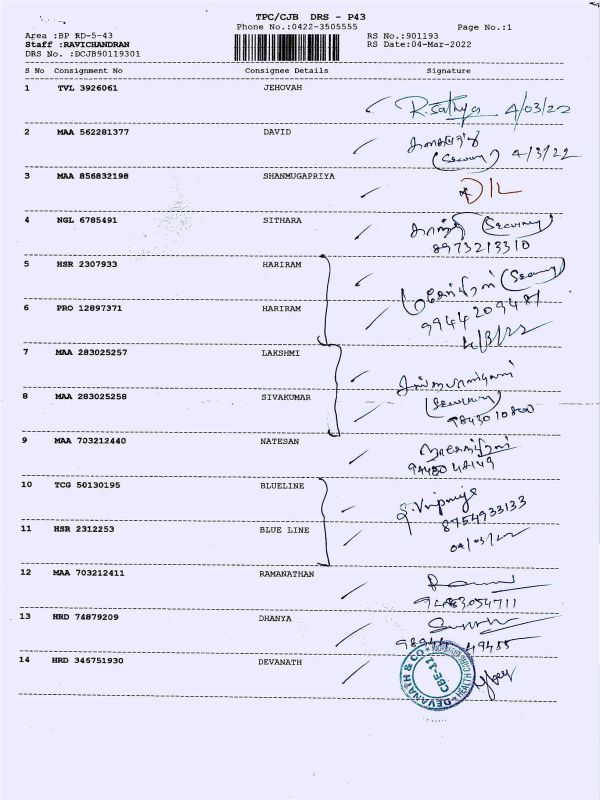 TPC/CJB DRS - P43
Phone No.:0422-3505555
Page No.:1
Area :BP RD-5-43
RS No.:901193
Staff :RAVICHANDRAN
RS Date:04-Mar-2022
DRS No. :DCJB90119301
S No Consignment No Consignee Details Signature
1 TVL 3926061 JEHOVAH
R.Sathya 4/03/22
2 MAA 562281377 DAVID
(Security) 4/3/22
3 MAA 856832198 SHANMUGAPRIYA
4 NGL 6785491 SITHARA
(Security)
8973213310
5 HSR 2307933 HARIRAM
(Security)
6 PRO 12897371 HARIRAM
4/3/22
7 MAA 283025257 LAKSHMI
8 MAA 283025258 SIVAKUMAR
(Security)
9 MAA 703212440 NATESAN
10 TCG 50130195 BLUELINE
8754933133
11 HSR 2312253 BLUE LINE
04/03/22
12 MAA 703212411 RAMANATHAN
9483054711
13 HRD 74879209 DHANYA
98944 49455
14 HRD 346751930 DEVANATH
DEVANATH & CO
CBE-11